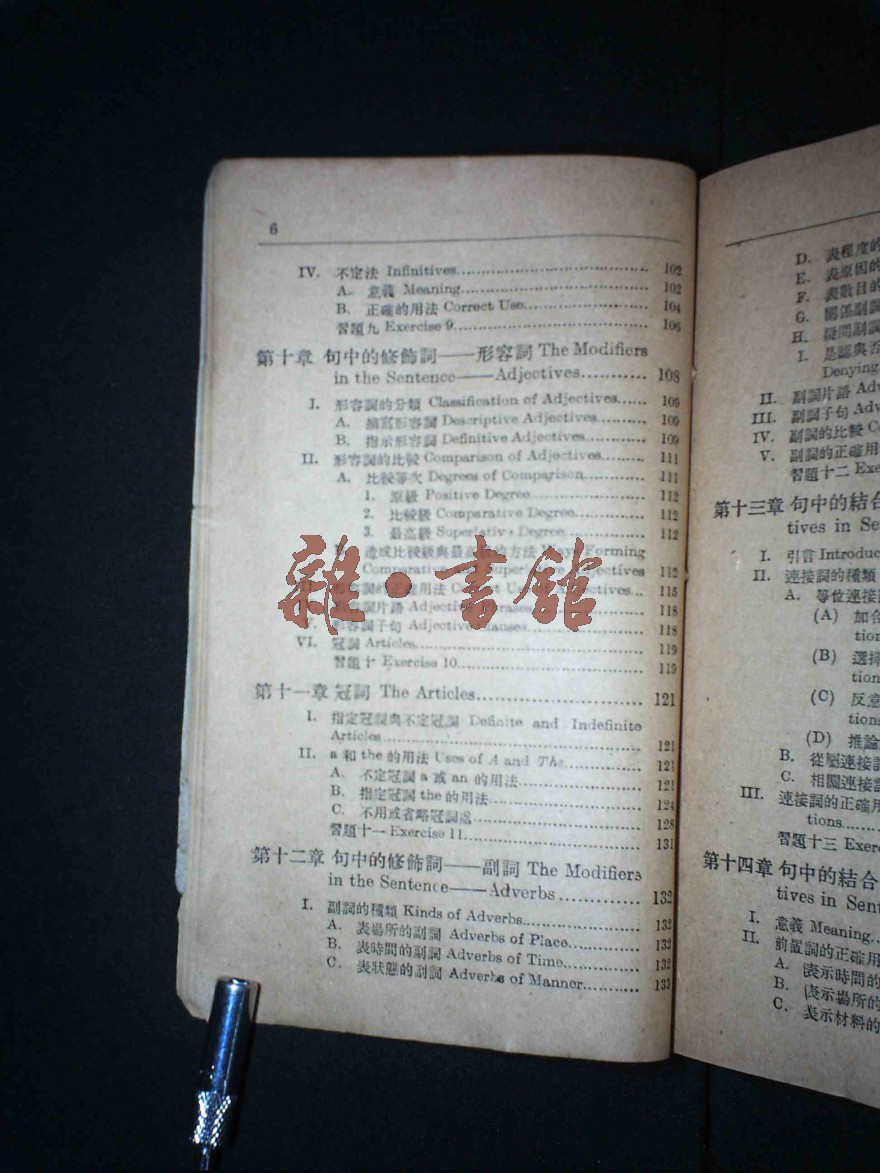 6
IV. 不定法 Infinitives........ 102
A. 意義 Meaning........ 102
B. 正確的用法 Correct Use........ 104
習題九 Exercise 9........ 106
第十章 句中的修飾詞——形容詞 The Modifiers
in the Sentence——Adjectives........ 108
I. 形容詞的分類 Classification of Adjectives...... 109
A. 描寫形容詞 Descriptive Adjectives........ 109
B. 指示形容詞 Definitive Adjectives........ 109
II. 形容詞的比較 Comparison of Adjectives........ 111
A. 比較等次 Degrees of Comparison........ 111
1. 原級 Positive Degree........ 112
2. 比較級 Comparative Degree........ 112
3. 最高級 Superlative Degree........ 112
造成比較級與最 的方法 Forming
Comparative Adjectives 112
用法 Adjectives... 115
形容詞片語 Adjective Phrases........ 118
形容詞子句 Adjective Clauses........ 118
VI. 冠詞 Articles........ 119
習題十 Exercise 10........ 119
雜·書館
第十一章 冠詞 The Articles........ 121
I. 指定冠詞與不定冠詞 Definite and Indefinite
Articles........ 121
II. a 和 the 的用法 Uses of A and The........ 121
A. 不定冠詞 a 或 an 的用法........ 121
B. 指定冠詞 the 的用法........ 124
C. 不用或省略冠詞處........ 128
習題十一 Exercise 11........ 131
第十二章 句中的修飾詞——副詞 The Modifiers
in the Sentence——Adverbs........ 132
I. 副詞的種類 Kinds of Adverbs........ 132
A. 表場所的副詞 Adverbs of Place........ 132
B. 表時間的副詞 Adverbs of Time........ 132
C. 表狀態的副詞 Adverbs of Manner........ 133
D. 表程度的
E. 表原因的
F. 表數目的
G. 關係副詞
H. 疑問副詞
I. 是認與否
Denying
II. 副詞片語 Adv
III. 副詞子句 Adv
IV. 副詞的比較 Co
V. 副詞的正確用
習題十二 Exe
第十三章 句中的結合
tives in Se
I. 引言 Introduc
II. 連接詞的種類
A. 等位連接詞
(A) 加合
tion
(B) 選擇
tion
(C) 反意
tions
(D) 推論
B. 從屬連接詞
C. 相關連接詞
III. 連接詞的正確用
tions........
習題十三 Exerc
第十四章 句中的結合
tives in Sent
I. 意義 Meaning..
II. 前置詞的正確用
A. 表示時間的
B. 表示場所的
C. 表示材料的